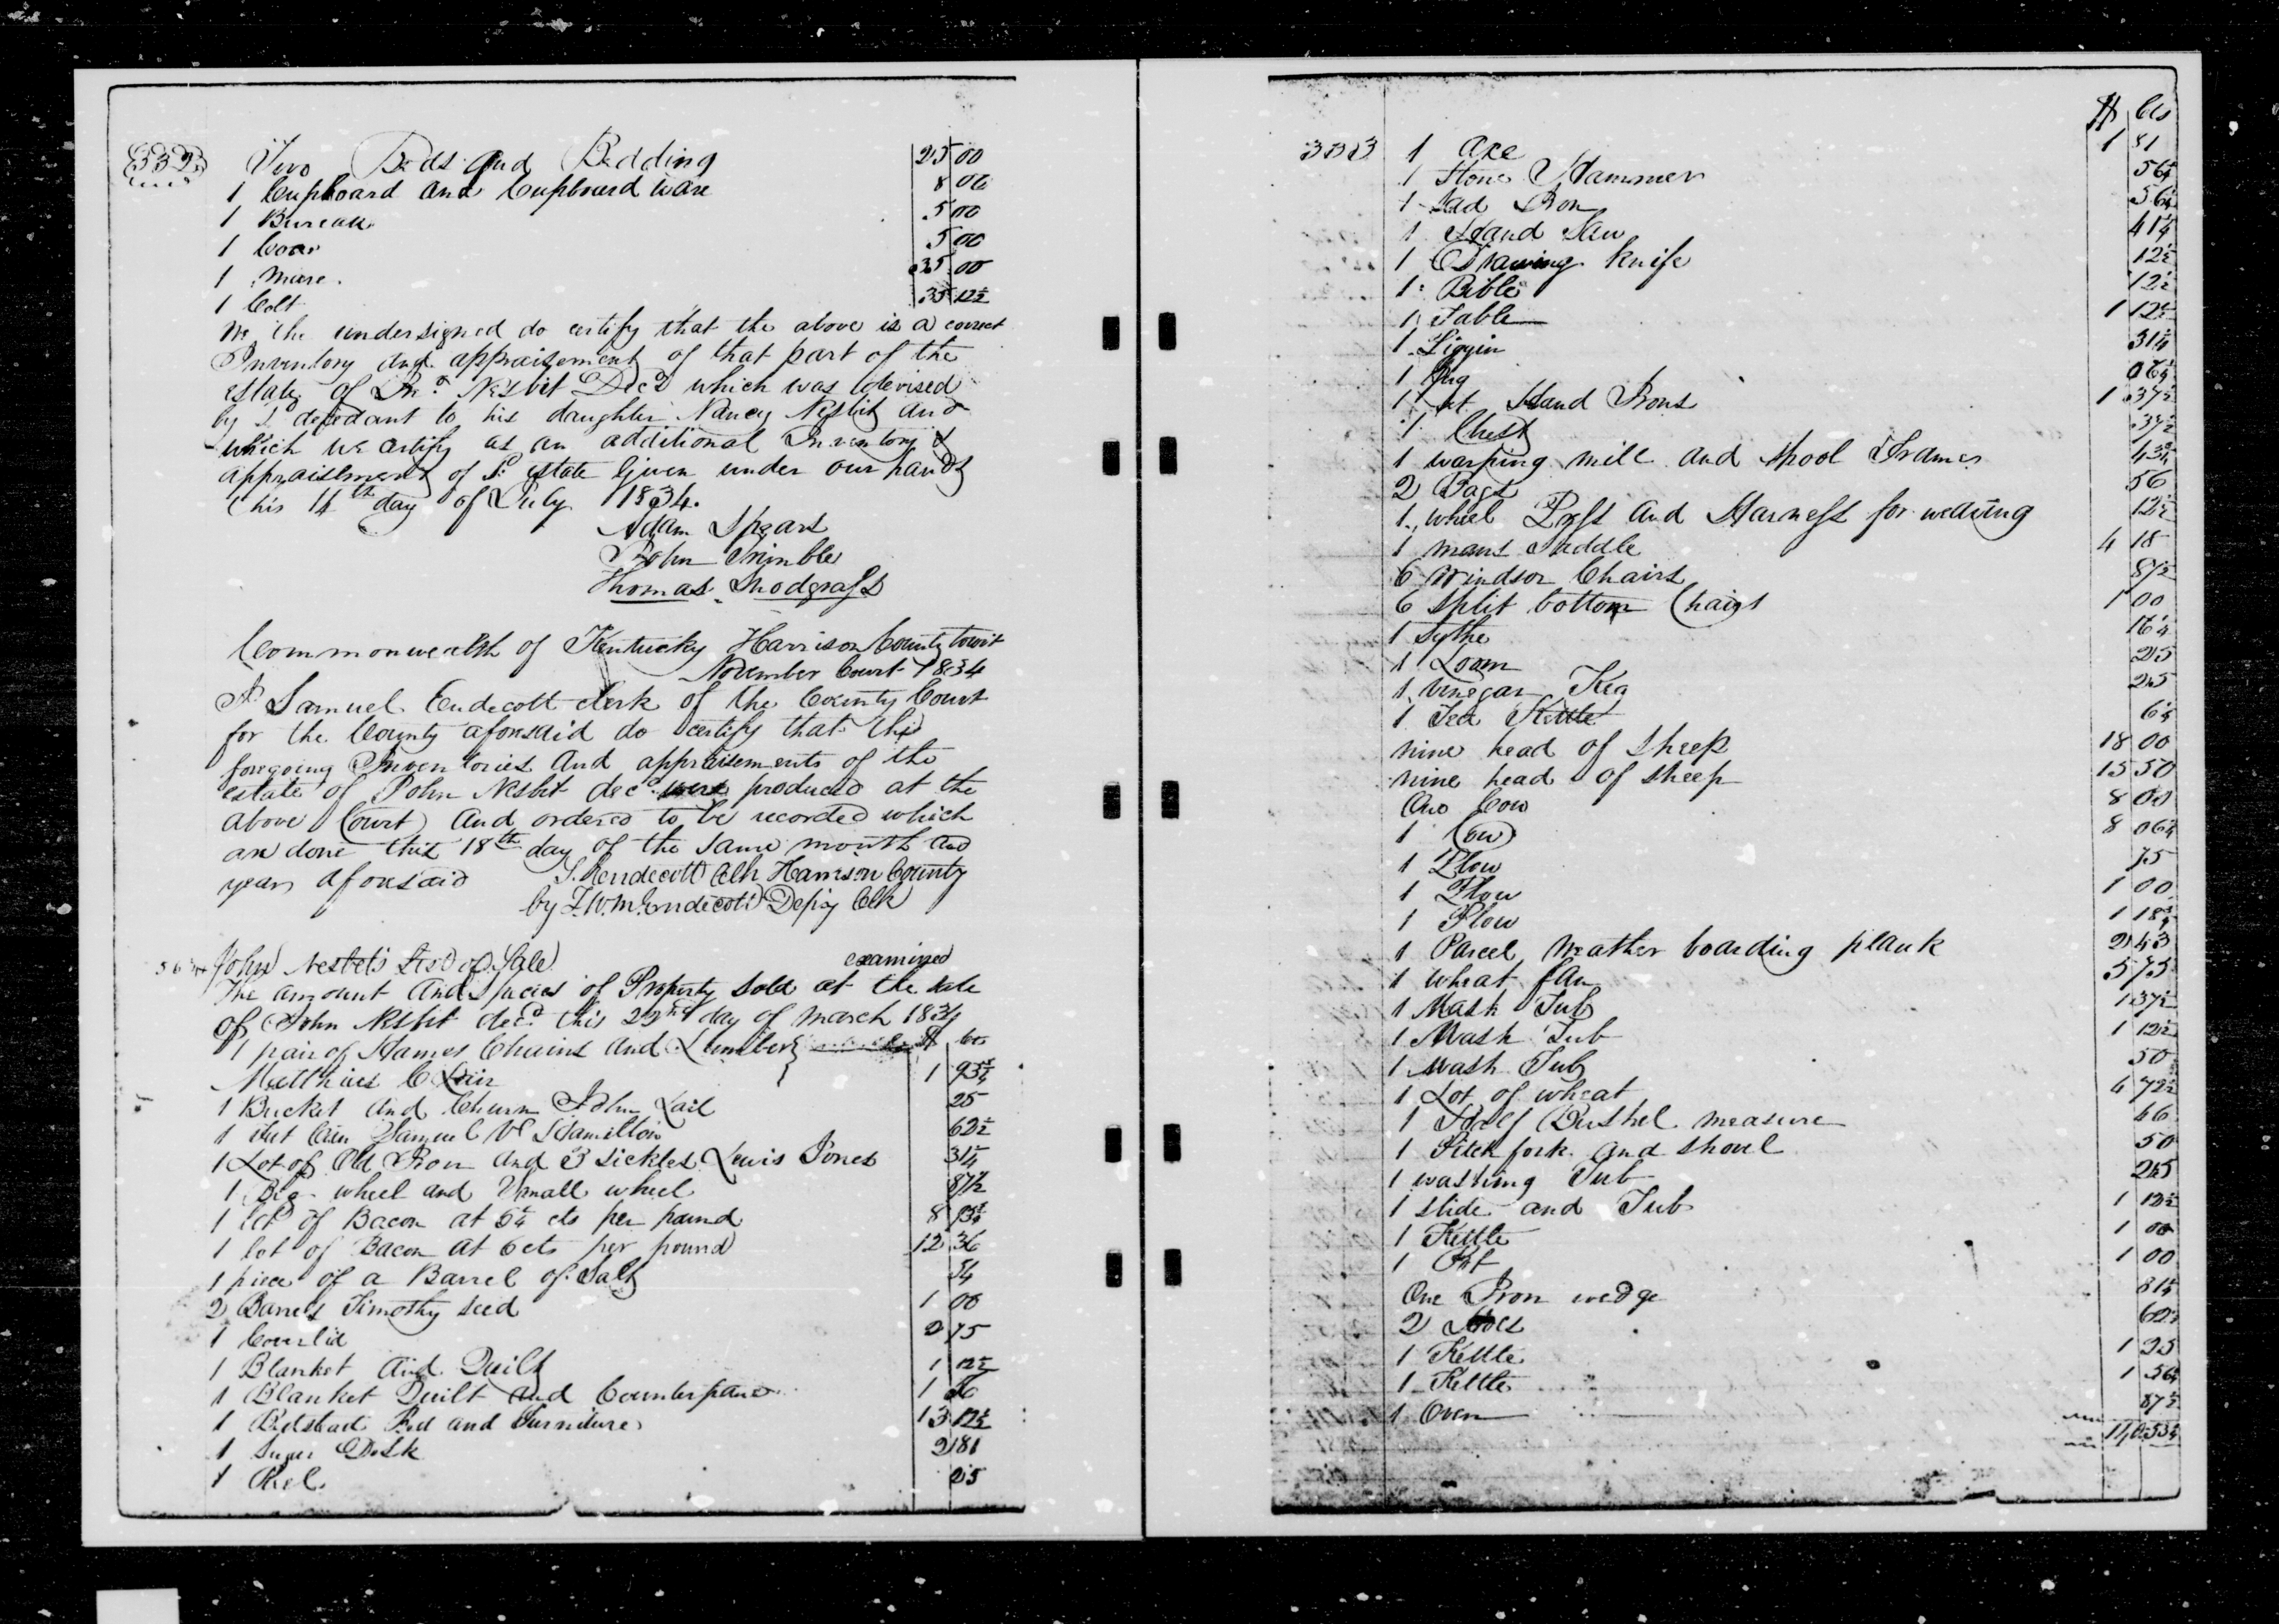 332
Two Beds and Bedding 25 00
1 Cupboard and Cupboard ware 8 00
1 Bureau 5 00
1 5 00
1 Mare 35 00
1 Colt 35 12½
We the undersigned do certify that the above is a correct
Inventory and appraisement of that part of the
estate of Jno. Nesbit Decd which was devised
by sd decedant to his daughter Nancy Nesbit and
which we certify as an additional Inventory &
appraisement of sd estate Given under our hands
this 14th day of July 1834.
Adam Spears
John Trimble
Thomas Snodgrass
Commonwealth of Kentucky Harrison County towit
November Court 1834
I Samuel Endecott clerk of the County Court
for the County aforesaid do certify that the
foregoing Inventories and appraisements of the
estate of John Nesbit decd were produced at the
above Court and ordered to be recorded which
are done this 18th day of the same month and
year aforesaid S. Hendecott Clk Harrison County
by J.W.M. Endecott Depy Clk
John Nesbit's List of Sale examined
The amount and species of Property sold at the sale
of John Nesbit decd this 22nd day of March 1834
1 pair of Hames Chains and Lumber $ cts
Matthias C Lair 1 93¾
1 Bucket and Churn John Lail 25
1 Samuel W Hamilton 62½
1 Lot of Old Iron and 3 sickles Lewis Jones 31¼
1 Big wheel and small wheel 87½
1 lot of Bacon at 5¼ cts per pound 8 93¾
1 lot of Bacon at 6 cts per pound 12 36
1 piece of a Barrel of Salt 54
2 Barrels Timothy seed 1 00
1 Coverlid 2 75
1 Blanket and Quilt 1 12½
1 Blanket Quilt and Counterpane 1 56
1 Bedstead Bed and Furniture 13 12½
1 Sugar Desk 2 81
1 Reel 25
333 $ Cts
1 Axe 1 81
1 Stone Hammer 56¼
1 Sad Iron 56¼
1 Hand Saw 41¼
1 Drawing knife 12½
1 Bible 12½
1 Table 1 12½
1 Piggin 31¼
1 Jug 06¼
1 set Hand Irons 1 37½
1 Chest 37½
1 warping mill and spool Frames 43¾
2 Bags 56
1 wheel and Harness for 12½
1 mans Saddle 4 18
6 Windsor Chairs 87½
6 split bottom Chairs 1 00
1 Sythe 16¼
1 Loom 25
1 Vinegar Keg 25
1 Tea Kettle 6¼
nine head of sheep 18 00
nine head of sheep 15 50
One Cow 8 00
1 Cow 8 06¼
1 Plow 75
1 Plow 1 00
1 Plow 1 18¾
1 Parcel Weather boarding plank 2 43
1 wheat fan 5 75
1 Mash Tub 1 37½
1 Mash Tub 1 12½
1 Mash Tub 50
1 Lot of wheat 4 72½
1 Half Bushel measure 66
1 Pitch fork and shovel 50
1 washing Tub 25
1 slide and Tub 1 12½
1 Kettle 1 00
1 Pot 1 00
One Iron wedge 81¼
2 Hoes 62½
1 Kettle 1 25
1 Kettle 1 56¼
1 Oven 87½